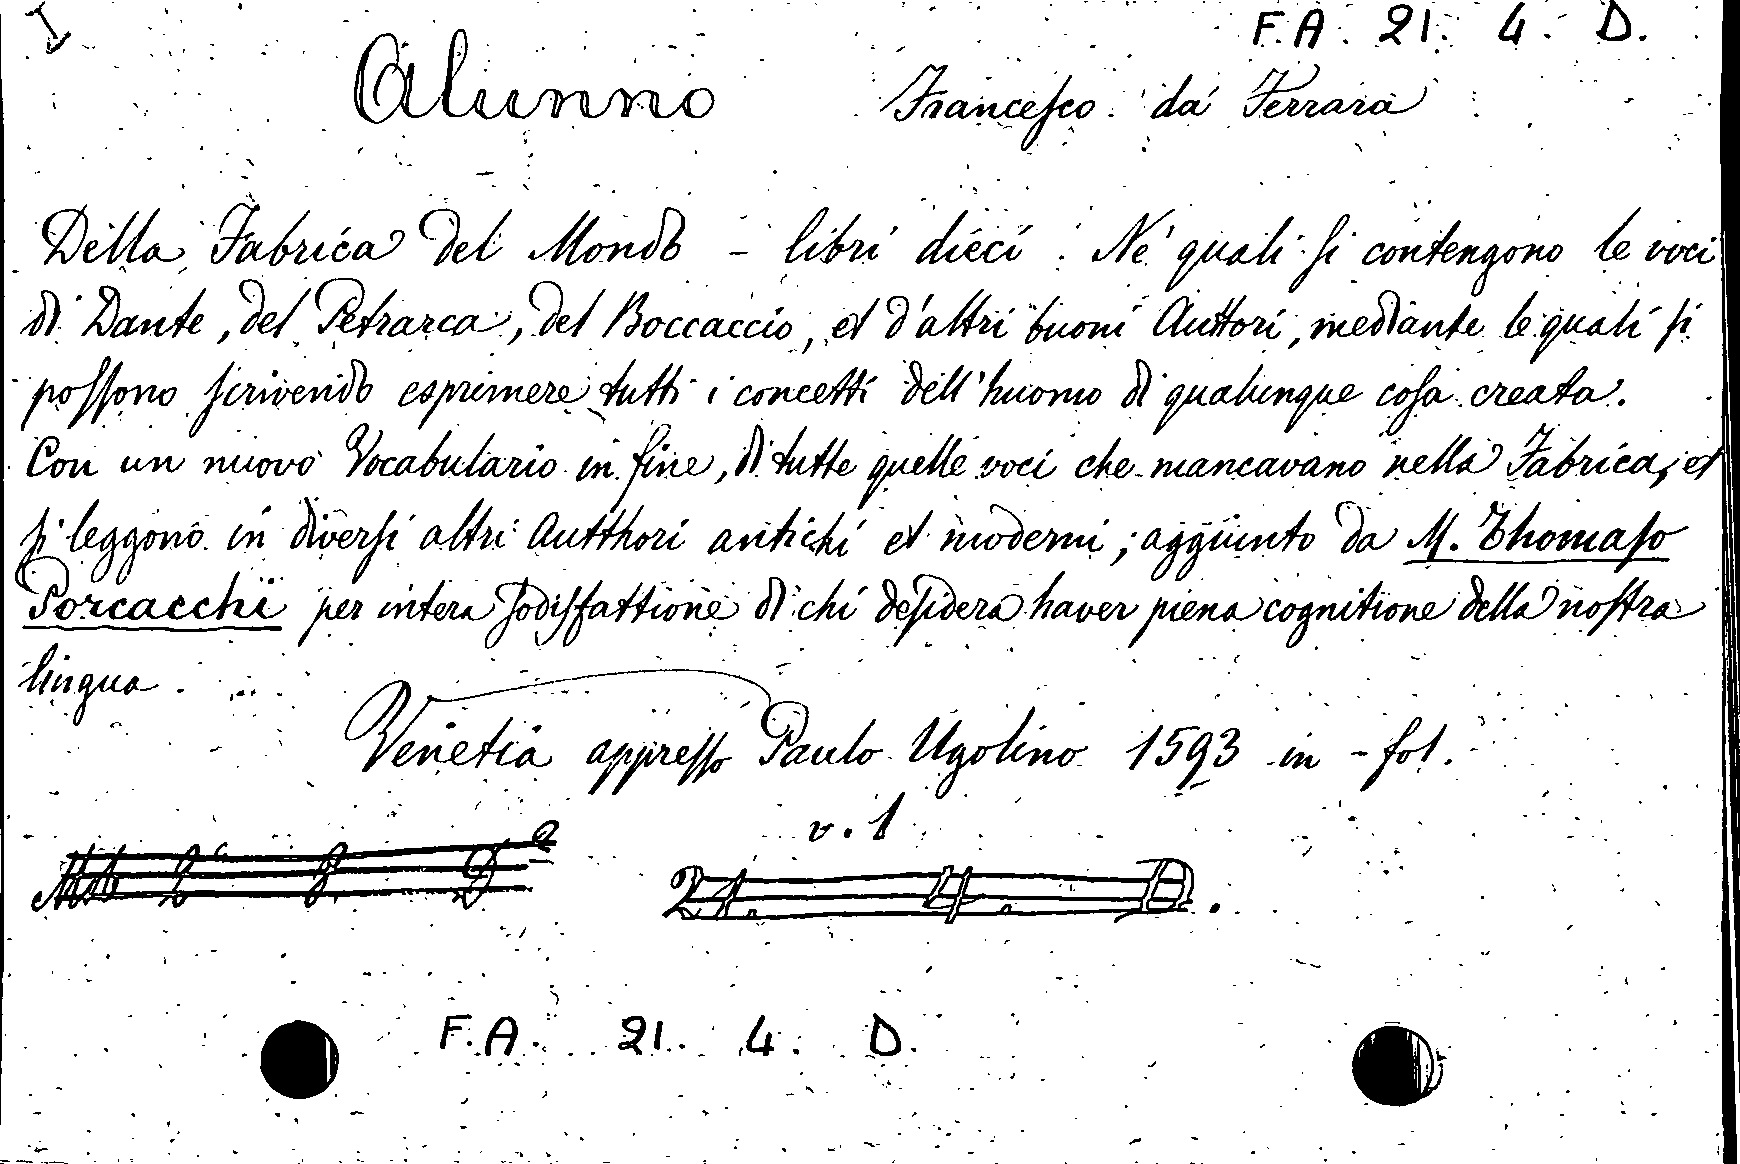 F.A. 21. 4. D.
Alunno Francesco da Ferrara
Della Fabrica del Mondo - libri dieci. Ne' quali si contengono le voci
di Dante, del Petrarca, del Boccaccio, et d'altri buoni Auttori, mediante le quali si
possono scrivendo esprimere tutti i concetti dell'huomo di qualunque cosa creata.
Con un nuovo Vocabulario in fine, di tutte quelle voci che mancavano nella Fabrica, et
si leggono in diversi altri Autthori antichi et moderni; aggiunto da M. Thomaso
Porcacchi per intera sodisfattione di chi desidera haver piena cognitione della nostra
lingua.
Venetia appresso Paulo Ugolino 1593 in-fol.
v. 1
21. 4. D.
F.A. 21. 4. D.